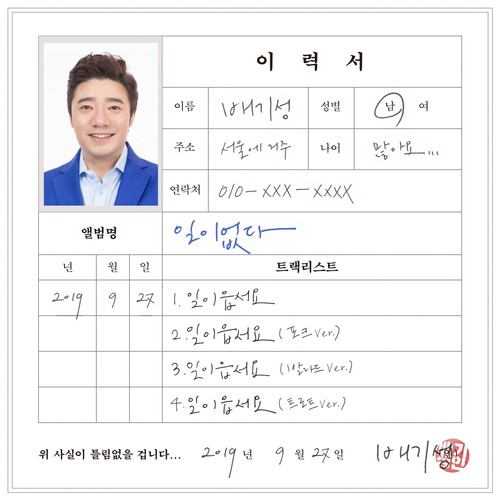 이 력 서
이름 배기성 성별 남 여
주소 서울에 거주 나이 많아요...
연락처 010-XXX-XXXX
앨범명 일이없다
년 월 일 트랙리스트
2019 9 27 1. 일이읍서요
2. 일이읍서요 (포크 Ver.)
3. 일이읍서요 (발라드 Ver.)
4. 일이읍서요 (트로트 Ver.)
위 사실이 틀림없을 겁니다... 2019 년 9 월 27 일 배기성